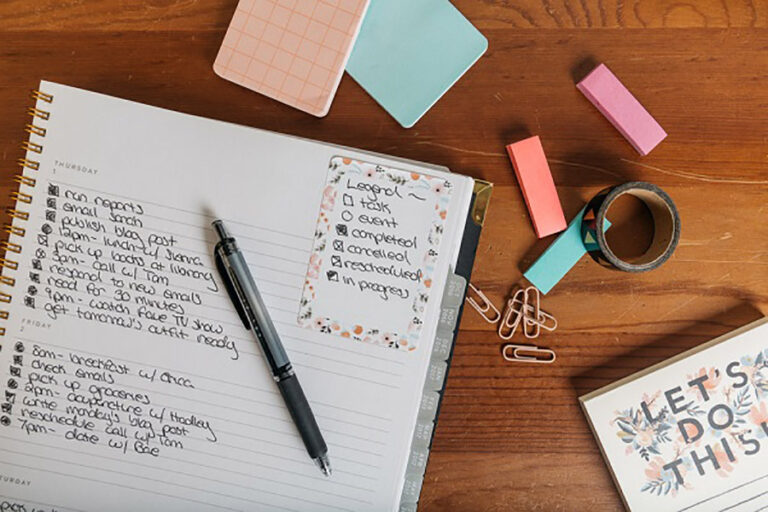 THURSDAY
1
run reports
email Sarah
publish blog post
12pm- lunch w/
pick up books at library
3pm- call w/ Tom
respond to new emails
read for 30 minutes
9pm- watch fave TV show
get tomorrow's outfit ready
FRIDAY
2
8am- breakfast w/
check emails
pick up groceries
2pm- acupuncture w/ Hadley
write monday's blog post
reschedule call w/ Tom
7pm- date w/ Bae
Legend ~
task
event
completed
cancelled
rescheduled
in progress
LET'S
DO
THIS